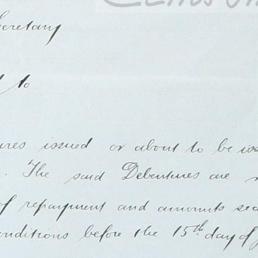 Secretary
to
ures issued or about to be iss
. The said Debentures are
of repayment and amounts sec
onditions before the 15th day of